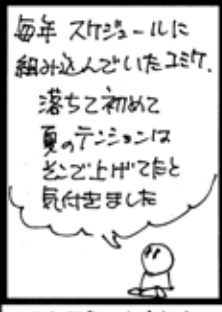 毎年 スケジュールに
組み込んでいたコミケ.
落ちて初めて
夏のテンションは
そこで上げてたと
気付きました